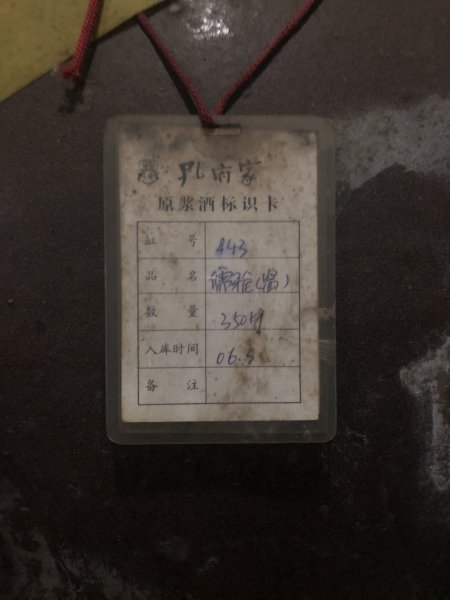 孔府家
原浆酒标识卡
缸 号 A43
品 名 儒雅(酱)
数 量 350
入库时间 06.5
备 注